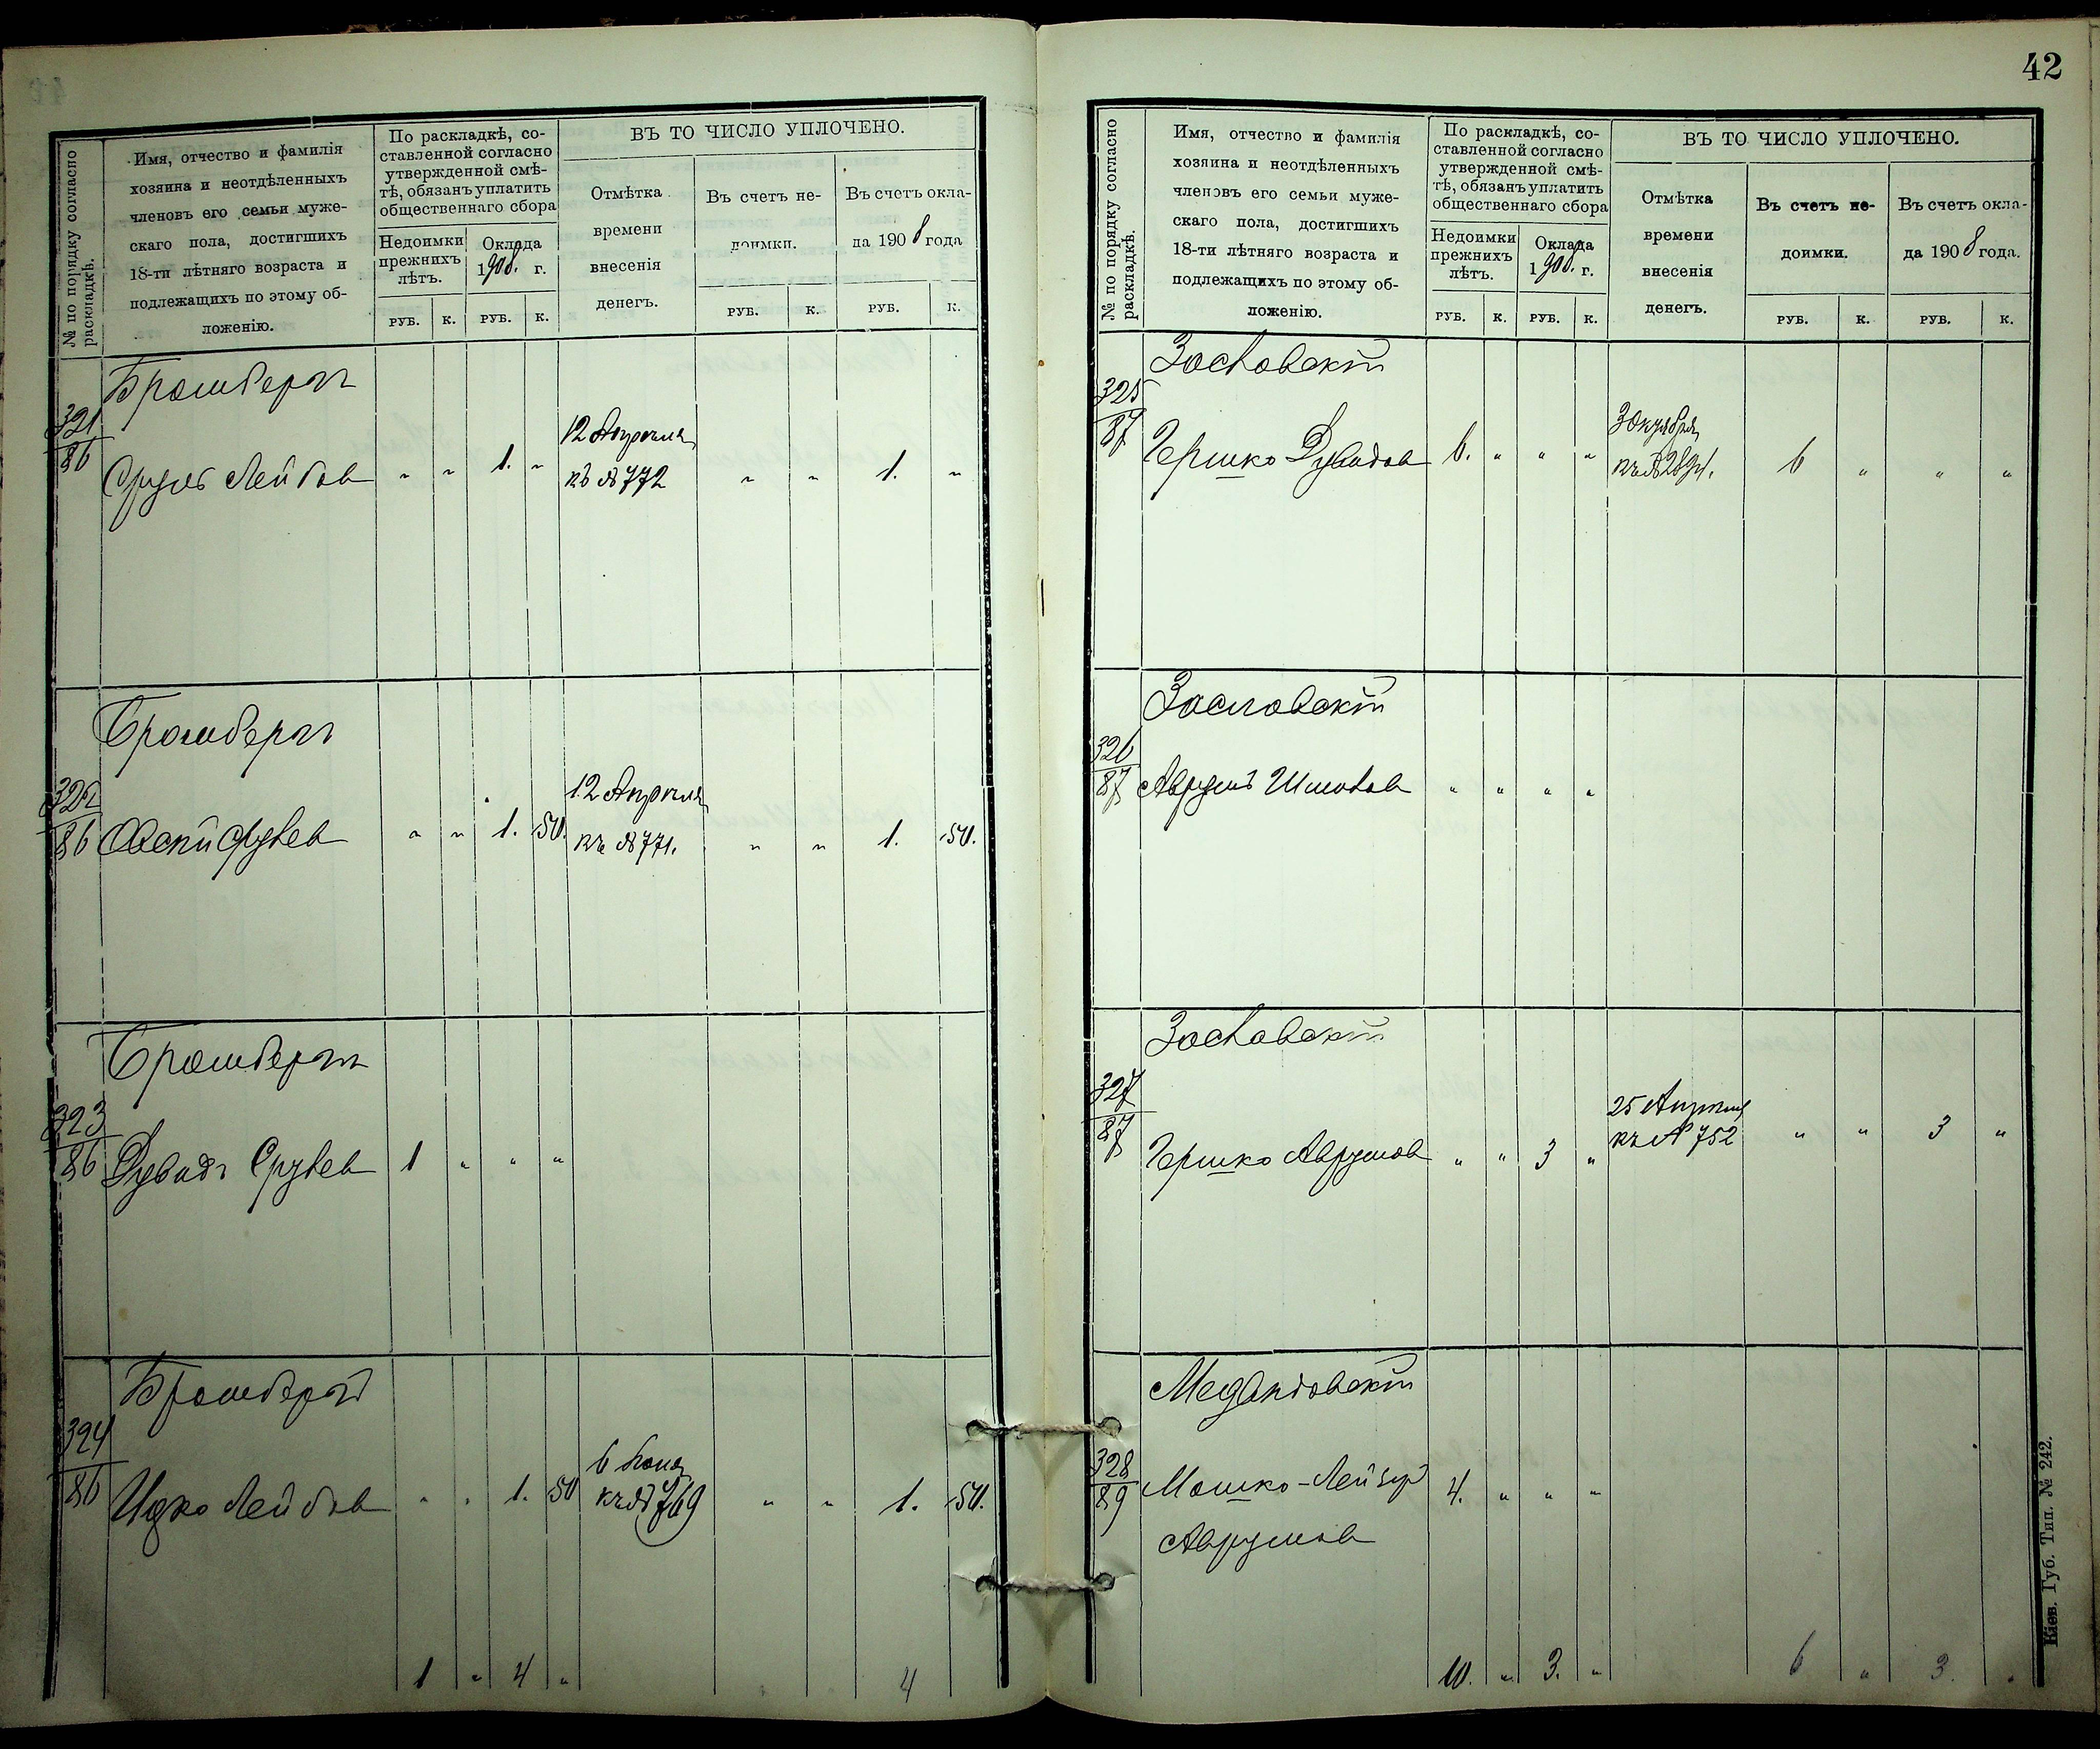 № по порядку согласно
раскладкѣ.
Имя, отчество и фамилія
хозяина и неотдѣленныхъ
членовъ его семьи муже-
скаго пола, достигшихъ
18-ти лѣтняго возраста и
подлежащихъ по этому об-
ложенію.
По раскладкѣ, со-
ставленной согласно
утвержденной смѣ-
тѣ, обязанъ уплатить
общественнаго сбора
Недоимки
прежнихъ
лѣтъ.
Оклада
1908. г.
РУБ. К. РУБ. К.
ВЪ ТО ЧИСЛО УПЛОЧЕНО.
Отмѣтка
времени
внесенія
денегъ.
Въ счетъ не-
доимки.
Въ счетъ окла-
да 1908 года
РУБ. К. РУБ. К.
Бромбергъ
321
86
Сруль Лейбов " " 1. "
12 Апрѣля
къ № 772
" " 1. "
Бромбергъ
322
86
Срулев " " 1. 50.
12 Апрѣля
къ № 771.
" " 1. 50.
Бромбергъ
323
86
Дувидъ Срулев 1 " " "
Бромбергъ
324
86
Ицко Лейбов " " 1. 50
6
къ № 769
" " 1. 50.
1 " 4 " 4
42
№ по порядку согласно
раскладкѣ.
Имя, отчество и фамилія
хозяина и неотдѣленныхъ
членовъ его семьи муже-
скаго пола, достигшихъ
18-ти лѣтняго возраста и
подлежащихъ по этому об-
ложенію.
По раскладкѣ, со-
ставленной согласно
утвержденной смѣ-
тѣ, обязанъ уплатить
общественнаго сбора
Недоимки
прежнихъ
лѣтъ.
Оклада
1908. г.
РУБ. К. РУБ. К.
ВЪ ТО ЧИСЛО УПЛОЧЕНО.
Отмѣтка
времени
внесенія
денегъ.
Въ счетъ не-
доимки.
Въ счетъ окла-
да 1908 года.
РУБ. К. РУБ. К.
Заславскій
325
87
Гершко Дувидов 6. " " "
3 Октября
къ №
6 " " "
Заславскій
326
87
Аврумъ Шмулев " " " "
Заславскій
327
87
Гершко Аврумов " " 3 "
25 Апрѣля
къ № 752
" " 3 "
328
89
Мошко-Лейзеръ 4. " " "
Аврумов
10. " 3. " 6 " 3.
Кіев. Губ. Тип. № 242.